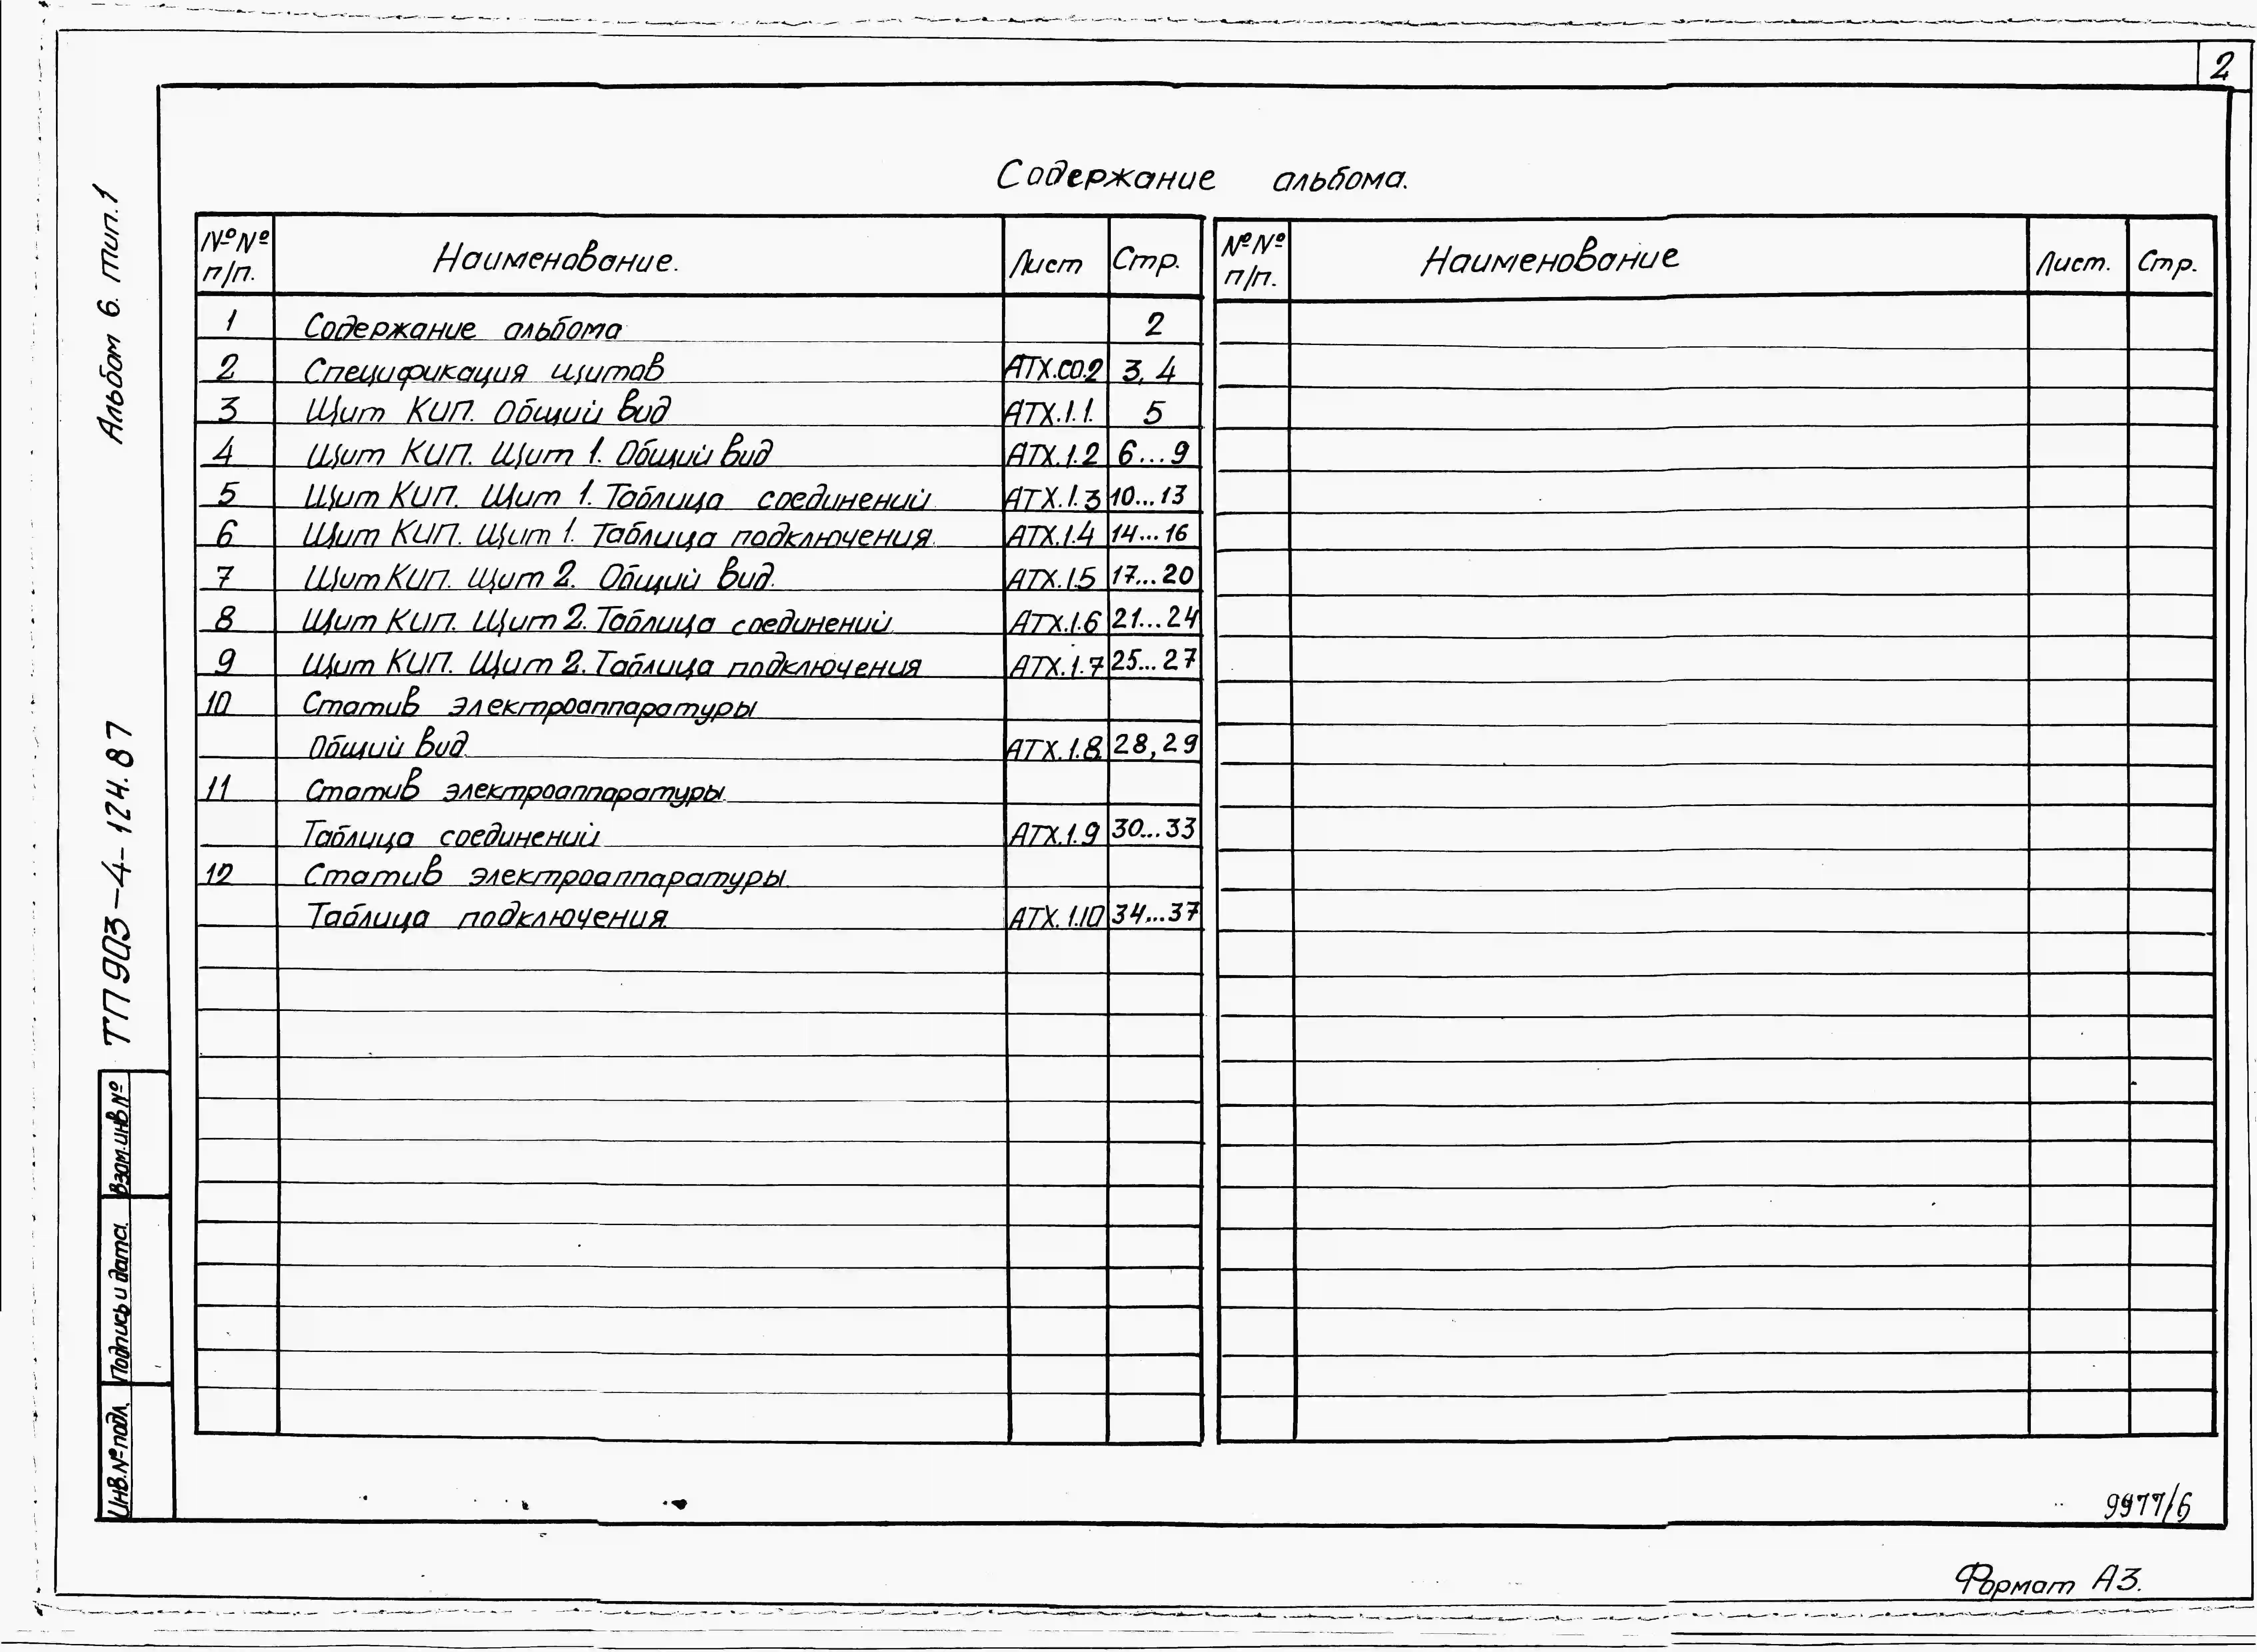 2
Содержание альбома.
№№ п/п. Наименование. Лист Стр.
1 Содержание альбома 2
2 Спецификация щитов АТХ.СО.2 3, 4
3 Щит КИП. Общий вид АТХ.1.1. 5
4 Щит КИП. Щит 1. Общий вид АТХ.1.2 6...9
5 Щит КИП. Щит 1. Таблица соединений АТХ.1.3 10...13
6 Щит КИП. Щит 1. Таблица подключения. АТХ.1.4 14...16
7 Щит КИП. Щит 2. Общий вид. АТХ.1.5 17...20
8 Щит КИП. Щит 2. Таблица соединений АТХ.1.6 21...24
9 Щит КИП. Щит 2. Таблица подключения АТХ.1.7 25...27
10 Статив электроаппаратуры
Общий вид. АТХ.1.8 28, 29
11 Статив электроаппаратуры.
Таблица соединений АТХ.1.9 30...33
12 Статив электроаппаратуры.
Таблица подключения. АТХ.1.10 34...37
№№ п/п. Наименование Лист. Стр.
Альбом 6. тип.1
ТП 903-4-124.87
Взам.инв№
Подпись и дата.
Инв.№подл.
9977/6
Формат А3.